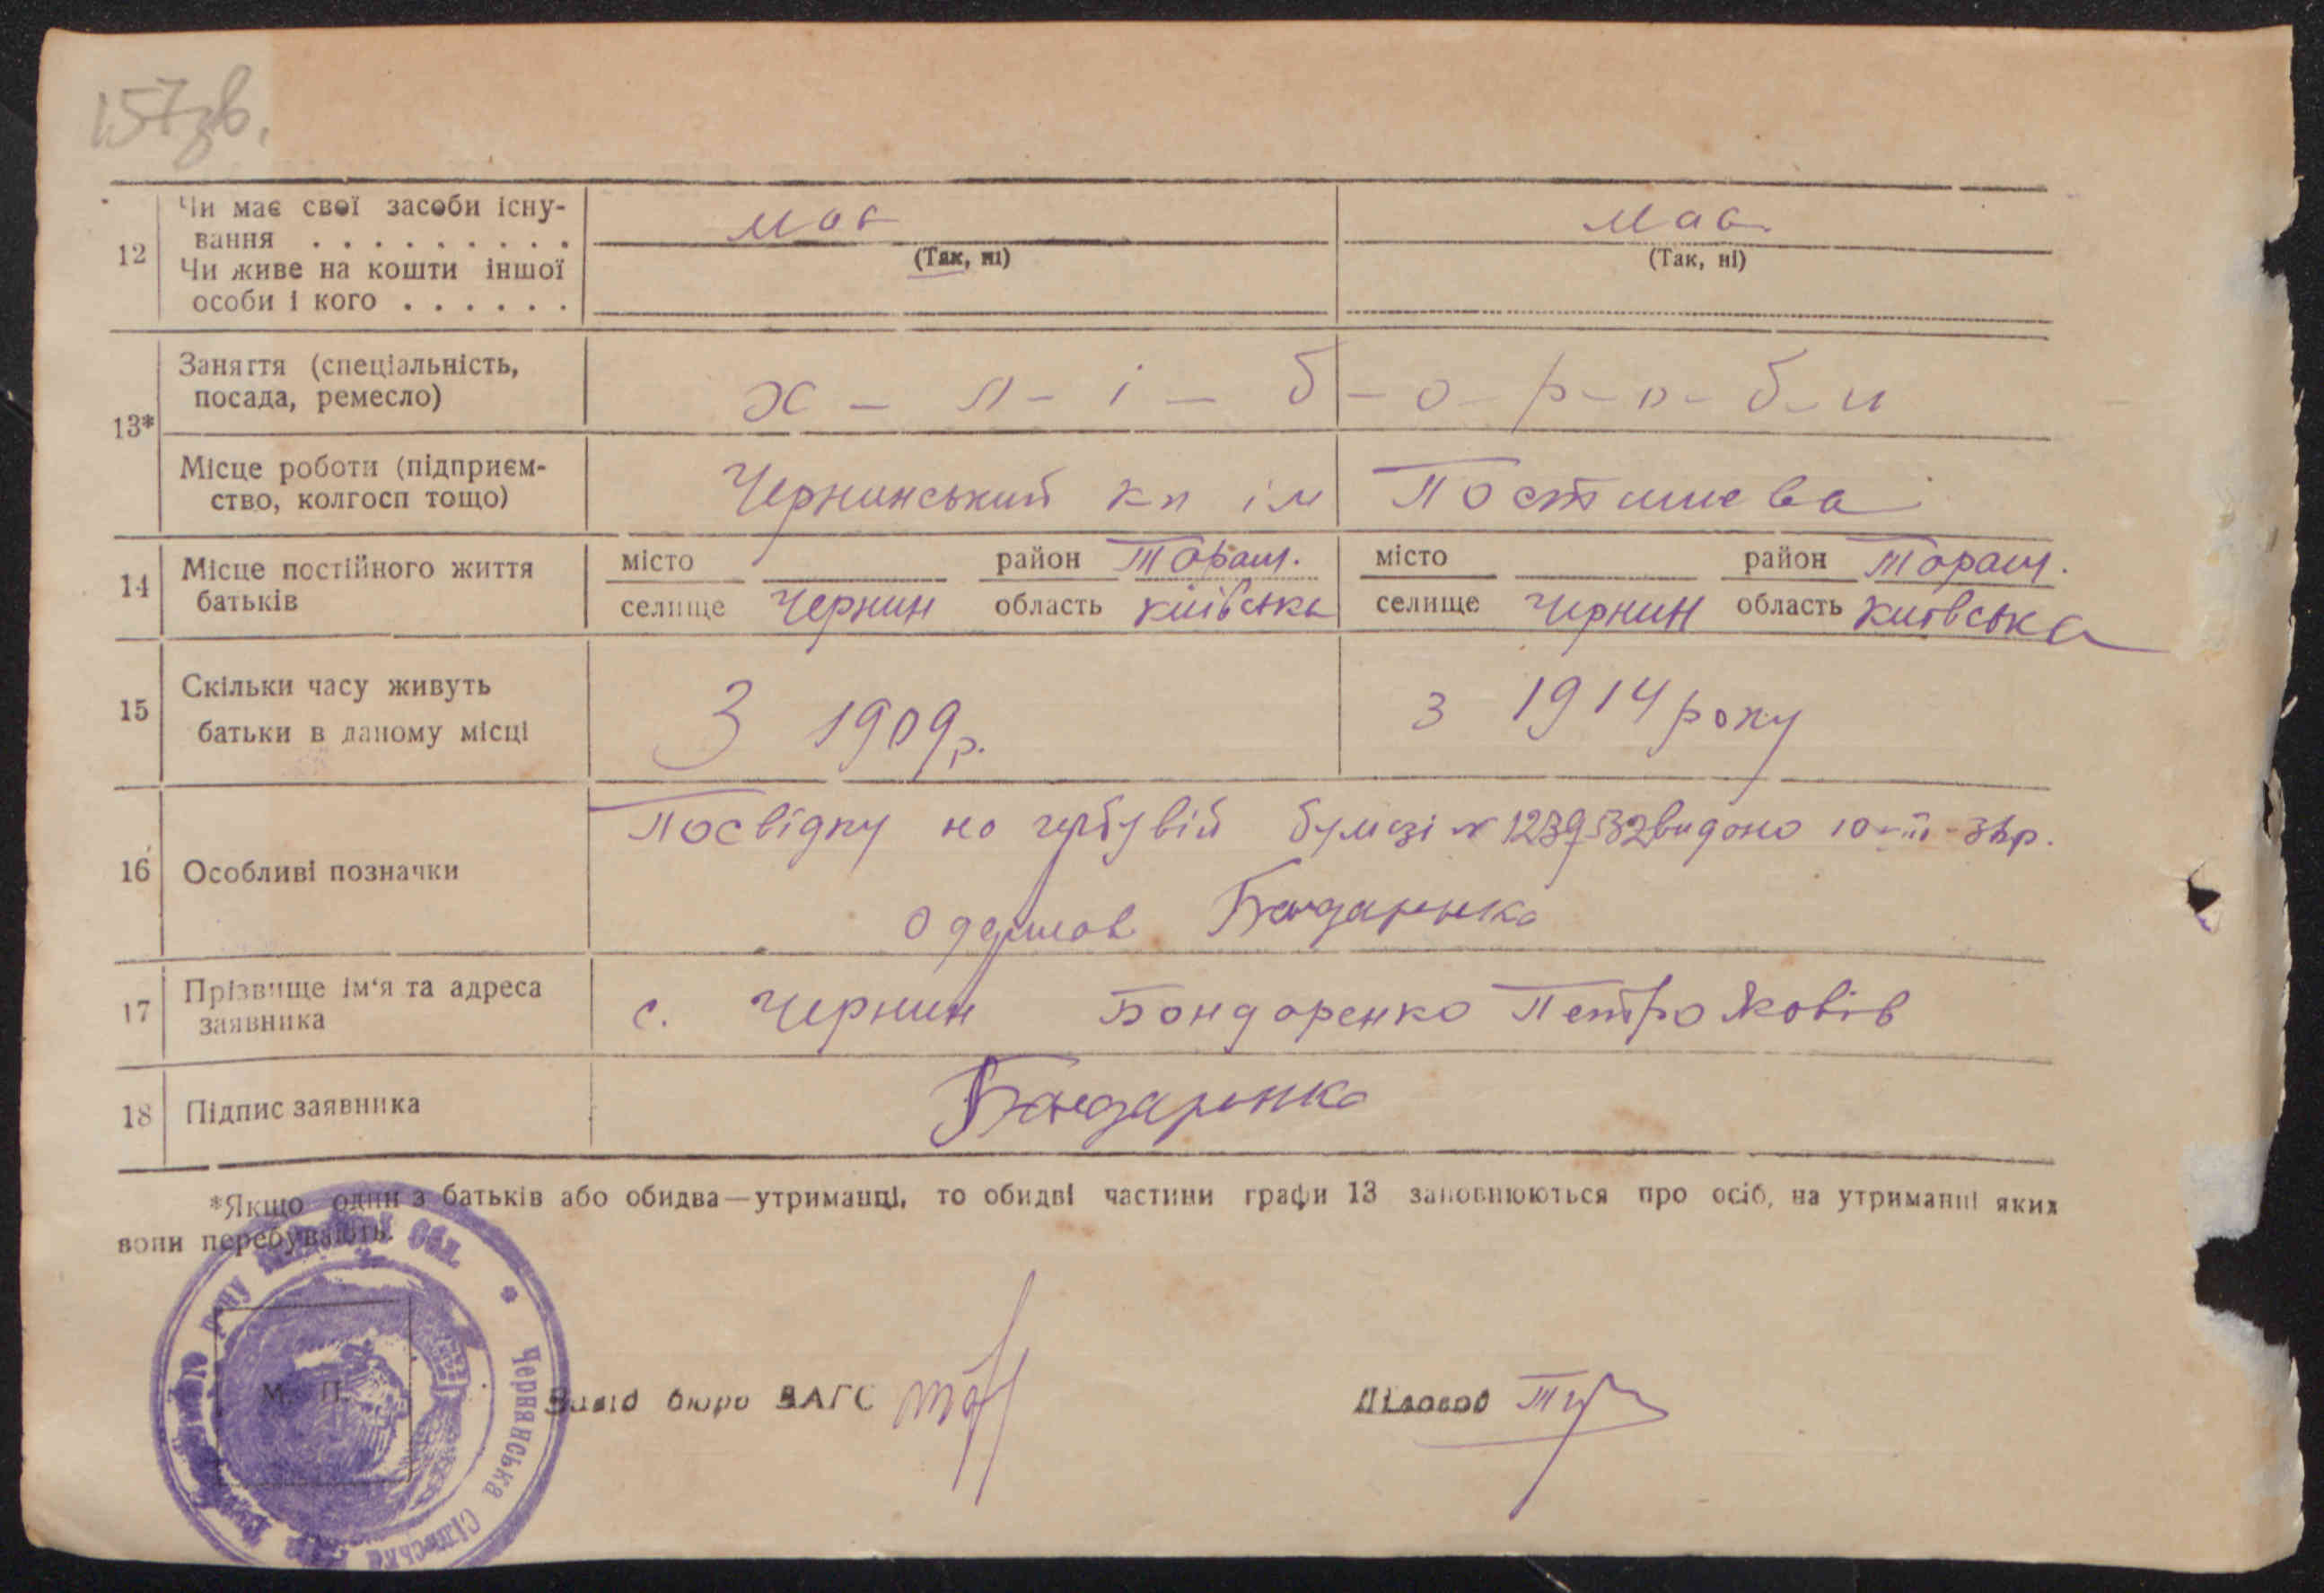 157зв.
12 Чи має свої засоби існу-
вання . . . . . . . . . має має
(Так, ні) (Так, ні)
Чи живе на кошти іншої
особи і кого . . . . . .
13* Заняття (спеціальність,
посада, ремесло) х - л - і - б - о - р - о - б - и
Місце роботи (підприєм-
ство, колгосп тощо) Чернинський кп ім Постишева
14 Місце постійного життя
батьків
місто район Тараш. місто район Тараш.
селище Чернин область київська селище Чернин область київська
15 Скільки часу живуть
батьки в даному місці З 1909р. з 1914 року
16 Особливі позначки
Посвідку на гербувій бумазі № видано
Одержав Бандаренко
17 Прізвище ім'я та адреса
заявника с. Чернин Бондаренко Петро Яковів
18 Підпис заявника Бандаренко
*Якщо один з батьків або обидва—утриманці, то обидві частини графи 13 заповнюються про осіб, на утриманні яких
вони перебувають.
Обл. * Чернянська Сільська
М. П.
Завід бюро ЗАГС
Діловод